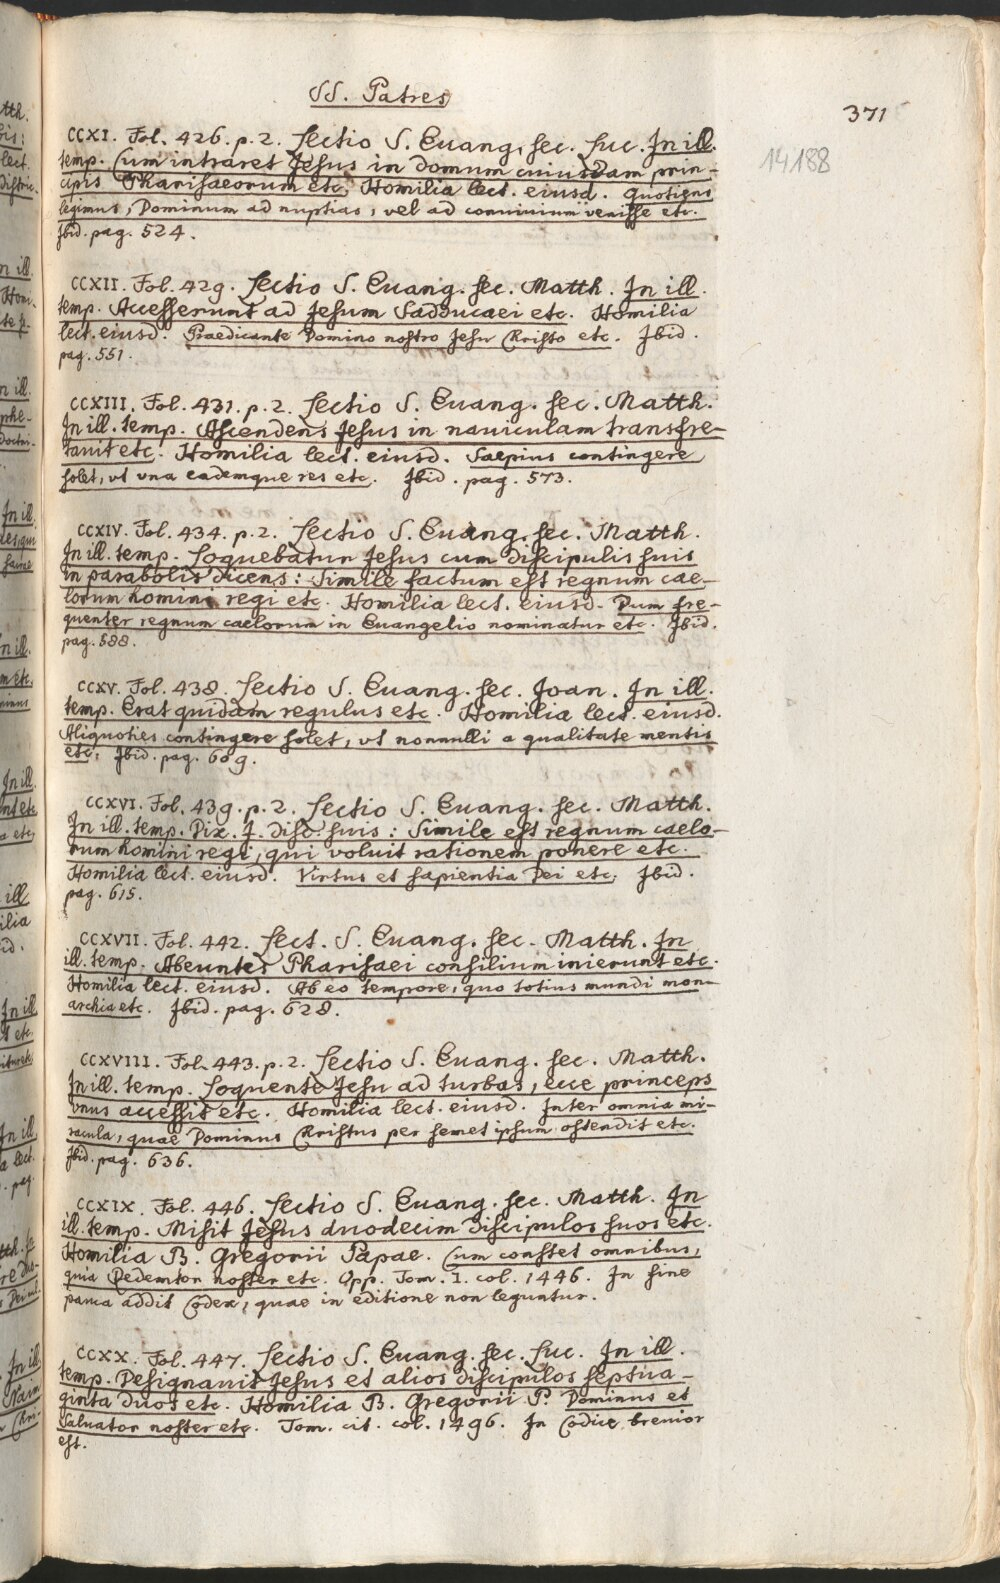 SS. Patres
371
14188
CCXI. Fol. 426. p. 2. Lectio S. Euang. sec. Luc. In ill.
temp. Cum intraret Jesus in domum cuiusdam prin-
cipis Pharisaeorum etc. Homilia lect. eiusd. Quotiens
legimus, Dominum ad nuptias, vel ad conuiuium venisse etc.
Ibid. pag. 524.
CCXII. Fol. 429. Lectio S. Euang. sec. Matth. In ill.
temp. Accesserunt ad Jesum Sadducaei etc. Homilia
lect. eiusd. Praedicante Domino nostro Jesu Christo etc. Ibid.
pag. 551.
CCXIII. Fol. 431. p. 2. Lectio S. Euang. sec. Matth.
In ill. temp. Ascendens Jesus in nauiculam transfre-
tauit etc. Homilia lect. eiusd. Saepius contingere
solet, vt vna eademque res etc. Ibid. pag. 573.
CCXIV. Fol. 434. p. 2. Lectio S. Euang. sec. Matth.
In ill. temp. Loquebatur Jesus cum discipulis suis
in parabolis dicens: Simile factum est regnum cae-
lorum homini regi etc. Homilia lect. eiusd. Dum fre-
quenter regnum caelorum in Euangelio nominatur etc. Ibid.
pag. 588.
CCXV. Fol. 438. Lectio S. Euang. sec. Joan. In ill.
temp. Erat quidam regulus etc. Homilia lect. eiusd.
Aliquoties contingere solet, vt nonnulli a qualitate mentis
etc. Ibid. pag. 609.
CCXVI. Fol. 439. p. 2. Lectio S. Euang. sec. Matth.
In ill. temp. Dix. J. disc. suis: Simile est regnum caelo-
rum homini regi, qui voluit rationem ponere etc.
Homilia lect. eiusd. Virtus et sapientia Dei etc. Ibid.
pag. 615.
CCXVII. Fol. 442. Lect. S. Euang. sec. Matth. In
ill. temp. Abeuntes Pharisaei consilium inierunt etc.
Homilia lect. eiusd. Ab eo tempore, quo totius mundi mon-
archia etc. Ibid. pag. 628.
CCXVIII. Fol. 443. p. 2. Lectio S. Euang. sec. Matth.
In ill. temp. Loquente Jesu ad turbas, ecce princeps
vnus accessit etc. Homilia lect. eiusd. Inter omnia mi-
racula, quae Dominus Christus per semet ipsum ostendit etc.
Ibid. pag. 636.
CCXIX. Fol. 446. Lectio S. Euang. sec. Matth. In
ill. temp. Misit Jesus duodecim discipulos suos etc.
Homilia B. Gregorii Papae. Cum constet omnibus,
quia Redemtor noster etc. Opp. Tom. I. col. 1446. In fine
pauca addit Codex, quae in editione non leguntur.
CCXX. Fol. 447. Lectio S. Euang. sec. Luc. In ill.
temp. Designauit Jesus et alios discipulos septua-
ginta duos etc. Homilia B. Gregorii P. Dominus et
Saluator noster etc. Tom. cit. col. 1496. In Codice breuior
est.